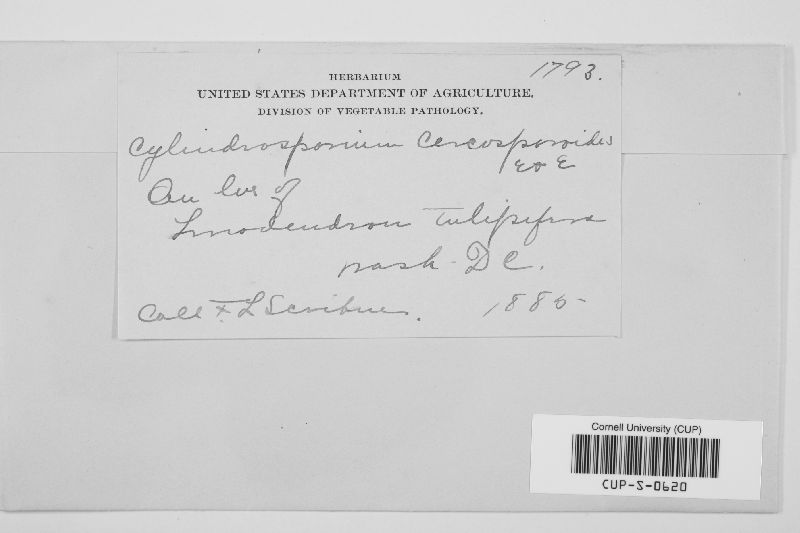 1793.
HERBARIUM
UNITED STATES DEPARTMENT OF AGRICULTURE,
DIVISION OF VEGETABLE PATHOLOGY.
Cylindrosporium Cercosporoides
E & E
On lvs of
Liriodendron tulipifera
Wash. D C.
Coll F. L Scribner. 1885
Cornell University (CUP)
CUP-S-0620